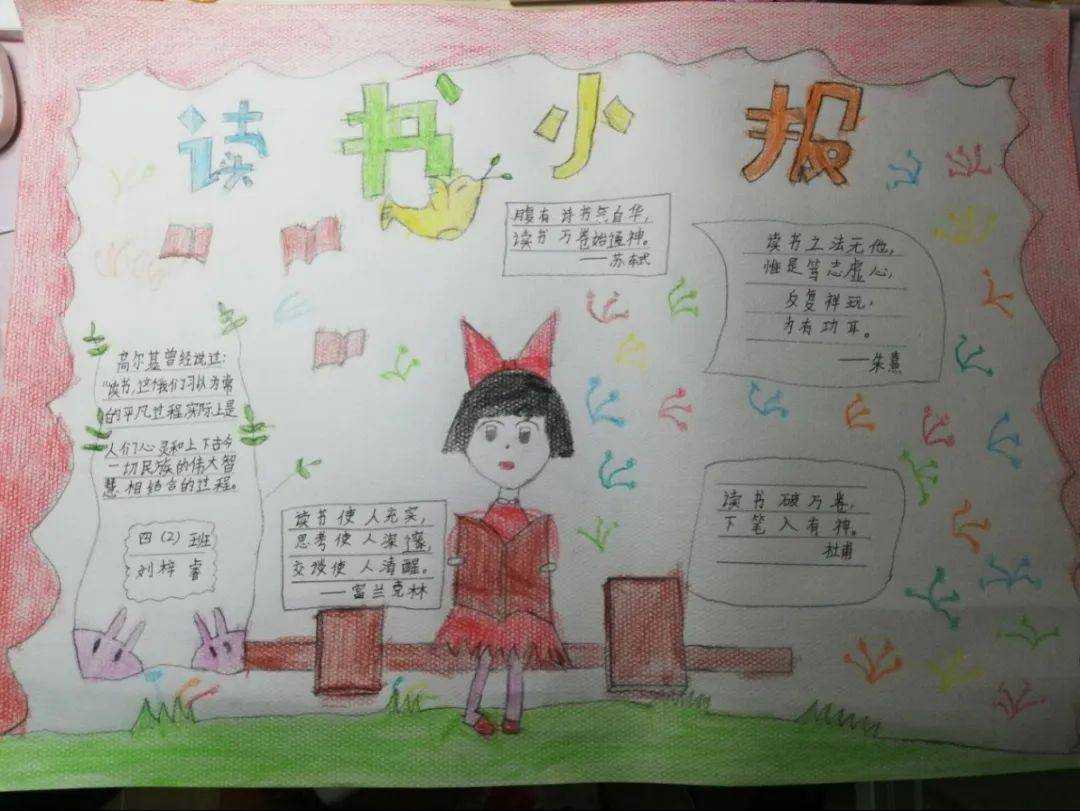 读书小报
腹有诗书气自华,
读书万卷始通神。
——苏东轼
读书之法无他,
惟是笃志虚心,
反复祥玩,
为有功耳。
——朱熹
高尔基曾经说过:
"读书,这个我们习以为常
的平凡过程,实际上是
人们心灵和上下古今
一切民族的伟大智
慧相结合的过程。
四(2)班
刘梓睿
读书使人充实,
思考使人深邃,
交谈使人清醒。
——富兰克林
读书破万卷,
下笔入有神。
杜甫